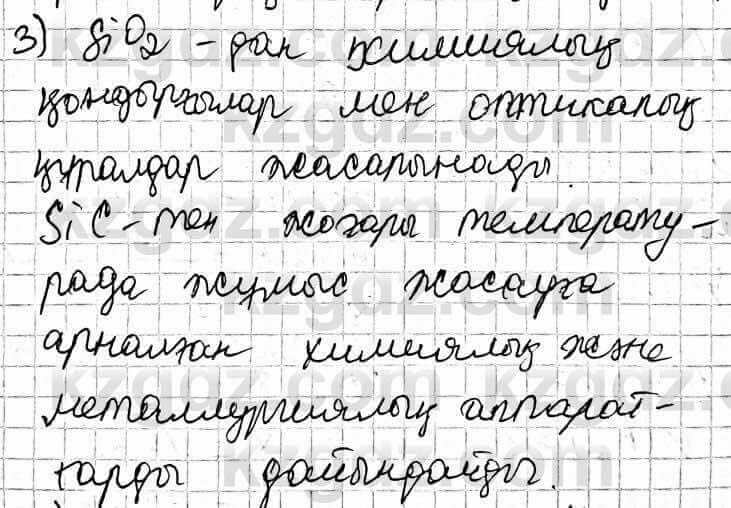 3) SiO2 - дан химиялық
қондырғылар мен оптикалық
құралдар жасалынады.
SiC - тен жоғары температу-
рада жұмыс жасауға
арналған химиялық және
металлургиялық аппарат-
тарды дайындайды.